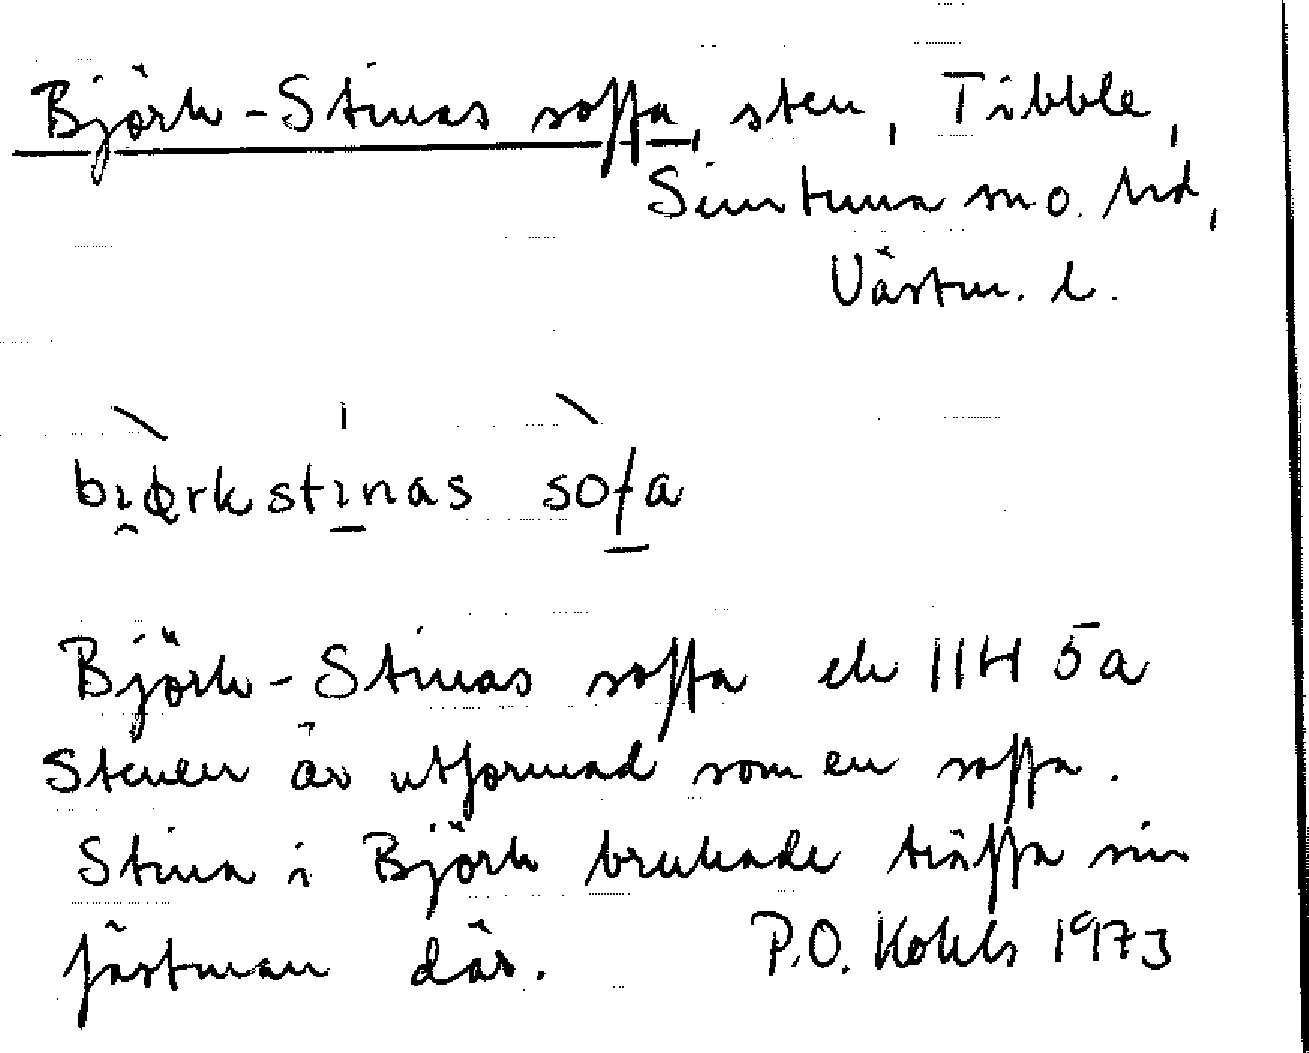 Björk-Stinas soffa, sten, Tibble,
Simtuna sn o. hd,
Västm. l.
biørkstinas sofa
Björk-Stinas soffa ek 11H 5a
Stenen är utformad som en soffa.
Stina i Björk brukade träffa sin
fästman där. P.O. Kohls 1973